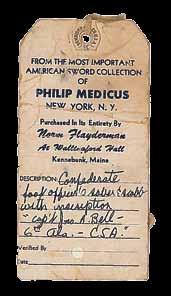 FROM THE MOST IMPORTANT
AMERICAN SWORD COLLECTION
OF
PHILIP MEDICUS
NEW YORK, N. Y.
Purchased In Its Entirety By
Norm Flayderman
At Wallingford Hall
Kennebunk, Maine
DESCRIPTION Confederate
foot officer's saber & scabb
with inscription
"Cap't Jno. A. Bell -
6th Ala. - C.S.A."
Verified By
Date